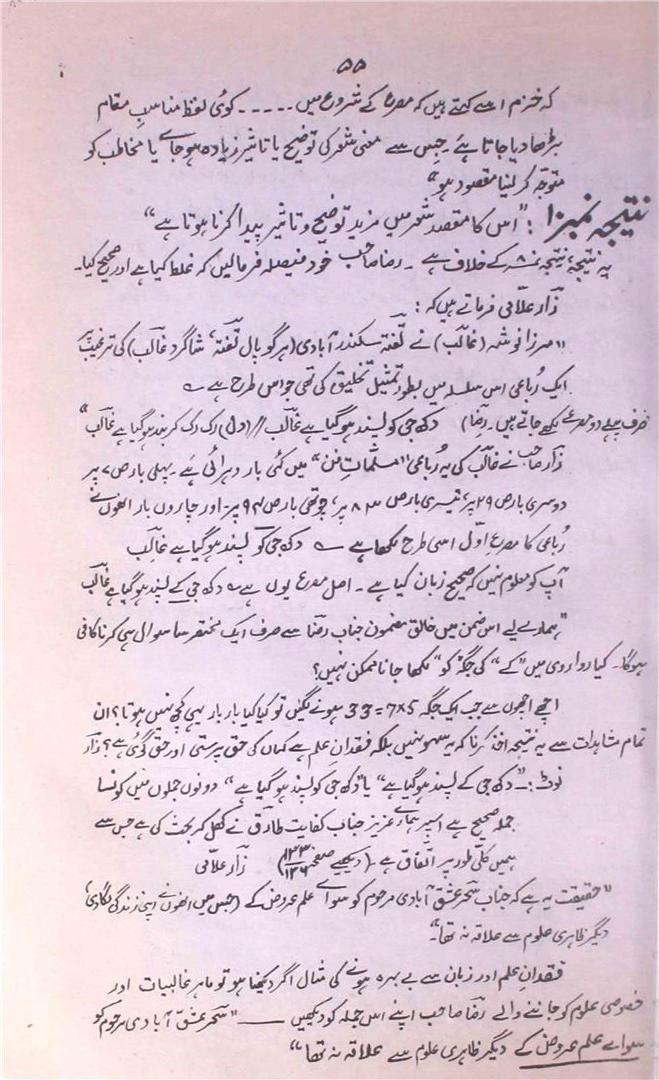 ۵۵
کہ خزم اسے کہتے ہیں کہ مصرع کے شروع میں ۔۔۔۔۔ کوئی لفظ مناسبِ مقام
بڑھا دیا جاتا ہے۔ جس سے معنی شعر کی توضیح یا تاثیر زیادہ ہو جاے یا مخاطب کو
متوجہ کر لینا مقصود ہو"
نتیجہ نمبر ۱۰: "اس کا مقصد شعر میں مزید توضیح و تاثیر پیدا کرنا ہوتا ہے"
یہ نتیجہ، نتیجہ نمبر ۸ کے خلاف ہے۔ رضا صاحب خود فیصلہ فرمالیں کہ غلط کیا ہے اور صحیح کیا۔
زار علامی فرماتے ہیں کہ:
"مرزا نوشہ (غالب) نے تفتہ سکندر آبادی (ہرگوپال تفتہ، شاگرد غالب) کی ترغیب پر
ایک رُباعی اس سلسلہ میں بطور تمثیل تخلیق کی تھی جو اس طرح ہے ؎
صرف پہلے دو مصرعے لکھے جاتے ہیں۔ رضا) دکھ جی کو پسند ہو گیا ہے غالب // دل رک رک کر بند ہو گیا ہے غالب"
زار صاحب نے غالب کی یہ رُباعی "مسلّماتِ فن" میں کئی بار دہرائی ہے۔ پہلی بار ص ۷ پر
دوسری بار ص ۲۹ پر، تیسری بار ص ۸۳ پر، چوتھی بار ص ۹۴ پر۔ اور چاروں بار انھوں نے
رُباعی کا مصرعِ اوّل اسی طرح لکھا ہے ؎ دکھ جی کو پسند ہو گیا ہے غالب
آپ کو معلوم نہیں کہ صحیح زبان کیا ہے۔ اصل مصرع یوں ہے ؎ دکھ جی کے پسند ہو گیا ہے غالب
"ہمارے لیے اس ضمن میں خالق مضمون جناب رضا سے صرف ایک مختصر سا سوال ہی کرنا کافی
ہوگا۔ کیا روا روی میں "کے" کی جگہ "کو" لکھا جانا ممکن نہیں؟
اچھے اچھوں سے جب ایک جگہ 7x5=33 ہونے لگیں تو کیا کیا بار بار یہی کچھ نہیں ہوتا؟ ان
تمام مشاہدات سے یہ نتیجہ اخذ کرنا کہ یہ سہو نہیں بلکہ فقدانِ علم ہے کہاں کی حق پرستی اور حق گوئی ہے؟ زار
نوٹ:۔ "دکھ جی کے پسند ہو گیا ہے" یا "دکھ جی کو پسند ہو گیا ہے" دونوں جملوں میں کونسا
جملہ صحیح ہے اسپر ہمارے عزیز جناب کفایت طارق نے کھل کر بحث کی ہے جس سے
ہمیں کلی طور پر اتفاق ہے۔ (دیکھیے صفحہ ۱۳۳/۱۳۶) زار علامی
"حقیقت یہ ہے کہ جناب سحر عشق آبادی مرحوم کو سواے علم عروض کے (جس میں انھوں نے اپنی زندگی لگادی)
دیگر ظاہری علوم سے علاقہ نہ تھا"۔
فقدانِ علم اور زبان سے بے بہرہ ہونے کی مثال اگر دیکھنا ہو تو ماہر غالبیات اور
خصوصی علوم کو جاننے والے رضا صاحب اپنے اس جملہ کو دیکھیں —— "سحر عشق آبادی مرحوم کو
سواے علم عروض کے دیگر ظاہری علوم سے علاقہ نہ تھا"